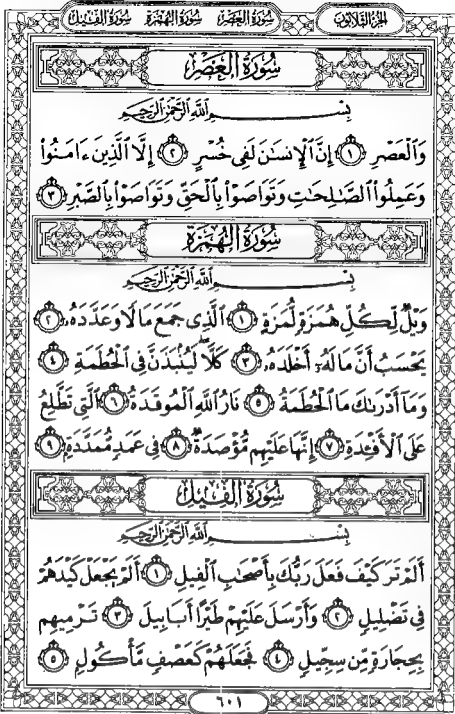 الجزء الثلاثون
سورة العصر سورة الهمزة سورة الفيل
سُورَةُ العَصْرِ
بِسْمِ ٱللَّهِ ٱلرَّحْمَٰنِ ٱلرَّحِيمِ
وَٱلْعَصْرِ ١ إِنَّ ٱلْإِنسَٰنَ لَفِى خُسْرٍ ٢ إِلَّا ٱلَّذِينَ ءَامَنُوا۟
وَعَمِلُوا۟ ٱلصَّٰلِحَٰتِ وَتَوَاصَوْا۟ بِٱلْحَقِّ وَتَوَاصَوْا۟ بِٱلصَّبْرِ ٣
سُورَةُ الهُمَزَةِ
بِسْمِ ٱللَّهِ ٱلرَّحْمَٰنِ ٱلرَّحِيمِ
وَيْلٌ لِّكُلِّ هُمَزَةٍ لُّمَزَةٍ ١ ٱلَّذِى جَمَعَ مَالًا وَعَدَّدَهُۥ ٢
يَحْسَبُ أَنَّ مَالَهُۥٓ أَخْلَدَهُۥ ٣ كَلَّا ۖ لَيُنۢبَذَنَّ فِى ٱلْحُطَمَةِ ٤
وَمَآ أَدْرَىٰكَ مَا ٱلْحُطَمَةُ ٥ نَارُ ٱللَّهِ ٱلْمُوقَدَةُ ٦ ٱلَّتِى تَطَّلِعُ
عَلَى ٱلْأَفْـِٔدَةِ ٧ إِنَّهَا عَلَيْهِم مُّؤْصَدَةٌ ٨ فِى عَمَدٍ مُّمَدَّدَةٍۭ ٩
سُورَةُ الفِيلِ
بِسْمِ ٱللَّهِ ٱلرَّحْمَٰنِ ٱلرَّحِيمِ
أَلَمْ تَرَ كَيْفَ فَعَلَ رَبُّكَ بِأَصْحَٰبِ ٱلْفِيلِ ١ أَلَمْ يَجْعَلْ كَيْدَهُمْ
فِى تَضْلِيلٍ ٢ وَأَرْسَلَ عَلَيْهِمْ طَيْرًا أَبَابِيلَ ٣ تَرْمِيهِم
بِحِجَارَةٍ مِّن سِجِّيلٍ ٤ فَجَعَلَهُمْ كَعَصْفٍ مَّأْكُولٍۭ ٥
٦٠١